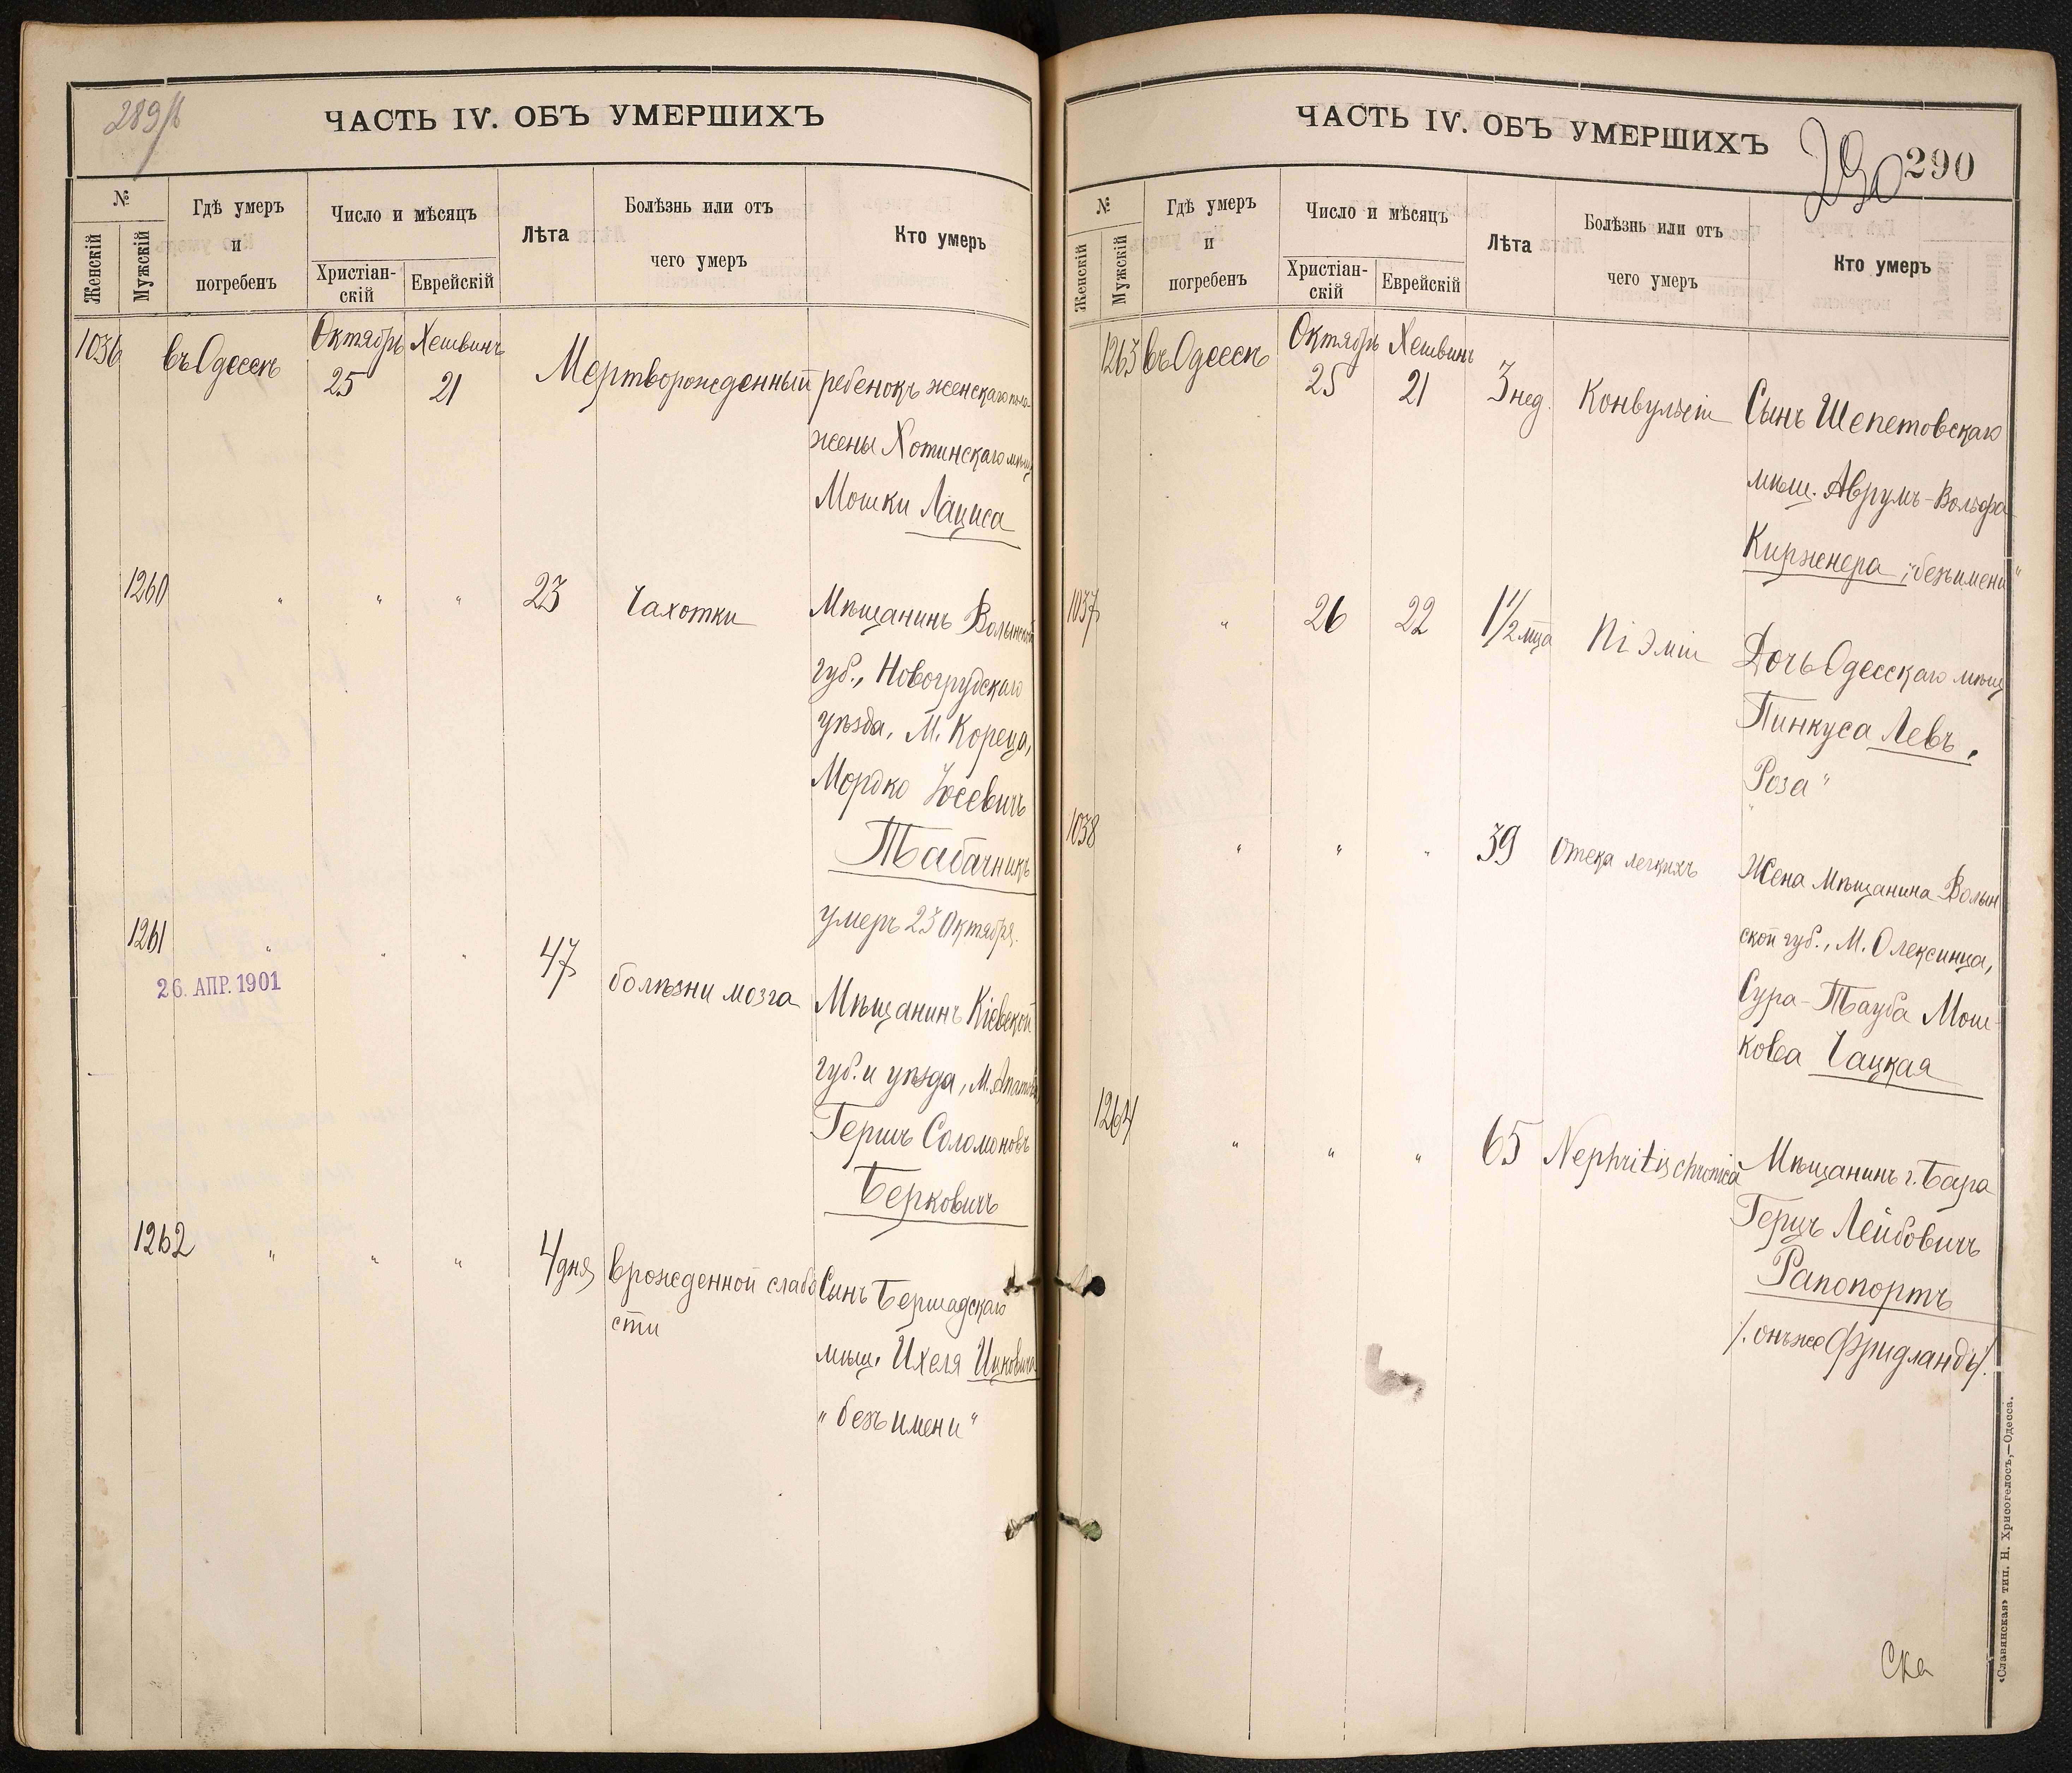 289/б
ЧАСТЬ IV. ОБЪ УМЕРШИХЪ
№
Женскій
Мужскій
Гдѣ умеръ
и
погребенъ
Число и мѣсяцъ
Христіан-
скій
Еврейскій
Лѣта
Болѣзнь или отъ
чего умеръ
Кто умеръ
1036 въ Одессѣ Октябрь 25 Хешвинъ 21 Мертворожденный ребенокъ женскаго пола
жены Хотинскаго мѣщ
Мошки Лациса
1260 " " " 23 Чахотки Мѣщанинъ Волынской
губ., Новогрудскаго
уѣзда, М. Кореца,
Мордко Іосевичъ
Табачникъ
умеръ 23 Октября.
1261 " " " 47 болѣзни мозга Мѣщанинъ Кіевской
26. АПР. 1901
губ. и уѣзда, М.
Гершъ Соломоновъ
Берковичъ
1262 " " " 4 дня врожденной слабо Сынъ Бершадскаго
сти
мѣщ. Ихеля Ицковича
"безъ имени"
ЧАСТЬ IV. ОБЪ УМЕРШИХЪ
290 290
№
Женскій
Мужскій
Гдѣ умеръ
и
погребенъ
Число и мѣсяцъ
Христіан-
скій
Еврейскій
Лѣта
Болѣзнь или отъ
чего умеръ
Кто умеръ
1263 въ Одессѣ Октябрь 25 Хешвинъ 21 3 нед. Конвульсіи Сынъ Шепетовскаго
мѣщ. Аврумъ-Вольфа
Кирженера, "безъ имени"
1037 " 26 22 1 1/2 мца Піэміи Дочь Одесскаго мѣщ
Пинкуса Левъ,
"Роза"
1038 " " " 39 Отека легкихъ Жена Мѣщанина Волын
ской губ., М. Олексинца,
Сура-Тауба Мош-
кова Чацкая
1264 " " " 65 Nephritis chronica Мѣщанинъ г. Бара
Герцъ Лейбовичъ
Рапопортъ
/. онъже Фридландъ/.
Ска
«Славянская» тип. Н. Хрисогелосъ,—Одесса.